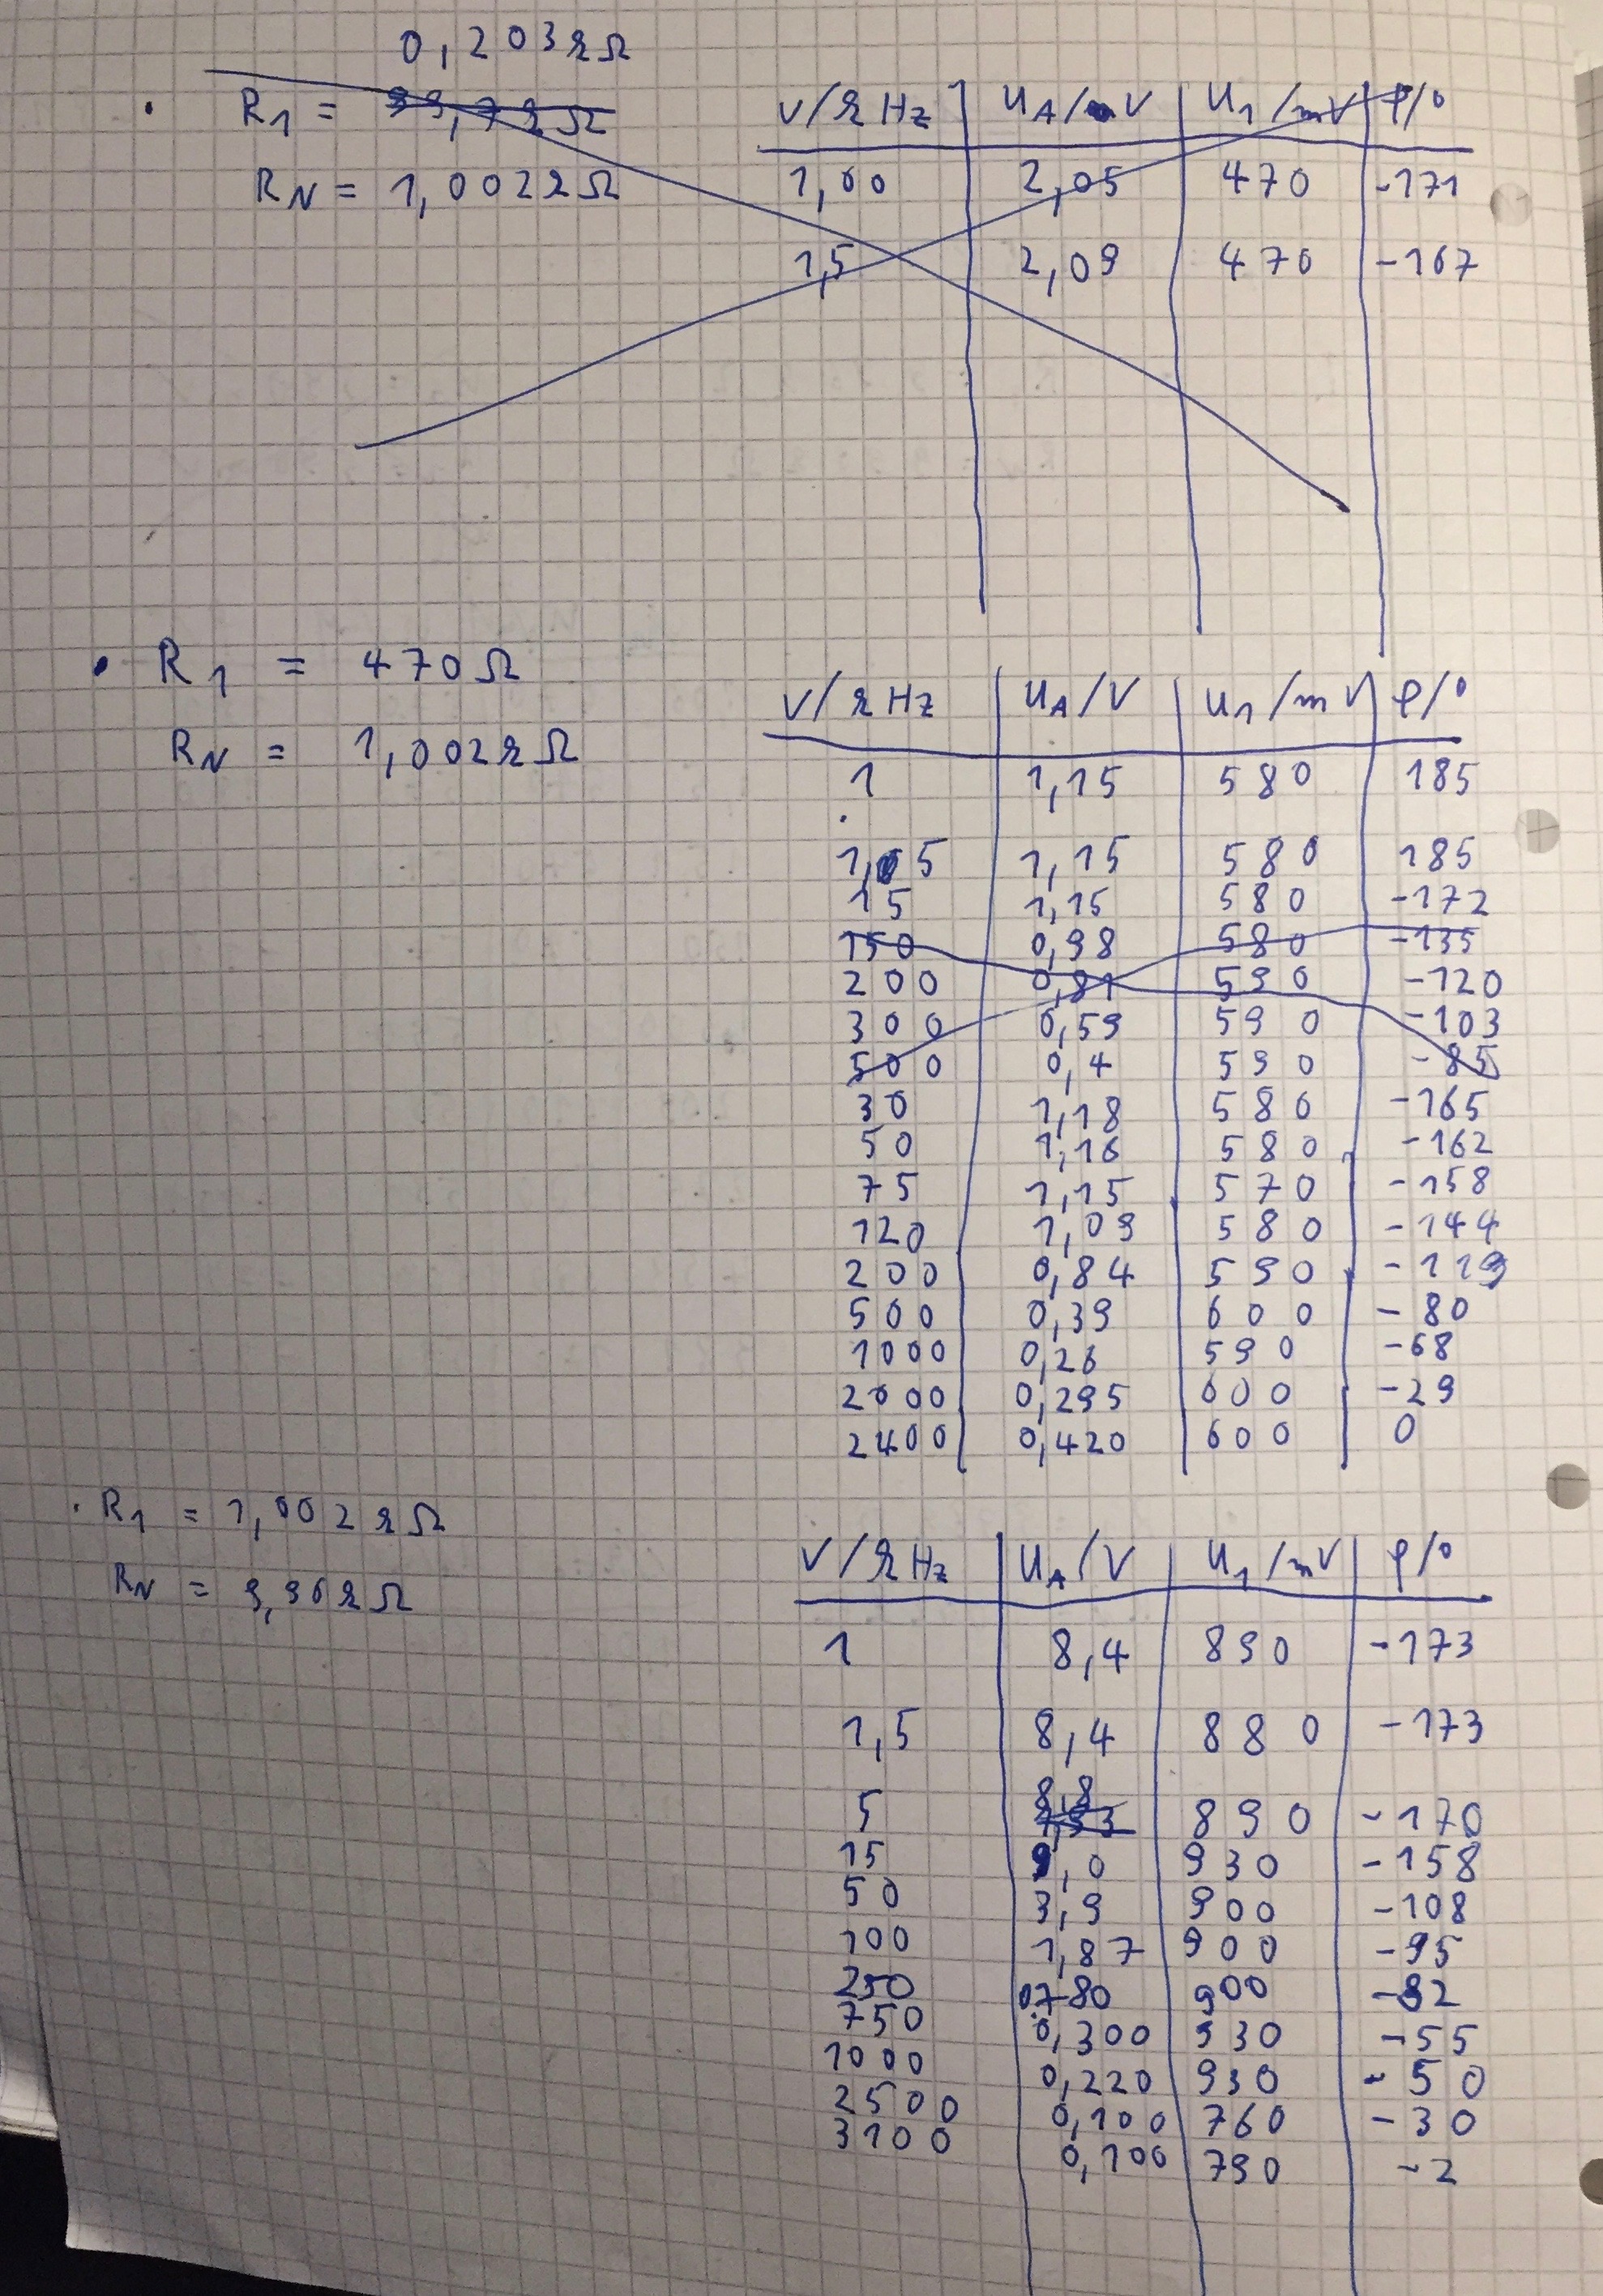 0,203kΩ
R1 = 99,7kΩ
RN = 1,002kΩ
ν/kHz | UA/V | U1/mV | φ/°
1,00 | 2,05 | 470 | -171
1,5 | 2,09 | 470 | -167
• R1 = 470Ω
RN = 1,002kΩ
ν/kHz | UA/V | U1/mV | φ/°
1 | 1,15 | 580 | 185
1,5 | 1,15 | 580 | 185
15 | 1,15 | 580 | -172
150 | 0,98 | 580 | -135
200 | 0,81 | 590 | -120
300 | 0,59 | 590 | -103
500 | 0,4 | 590 | -85
30 | 1,18 | 580 | -165
50 | 1,16 | 580 | -162
75 | 1,15 | 570 | -158
120 | 1,09 | 580 | -144
200 | 0,84 | 590 | -119
500 | 0,39 | 600 | -80
1000 | 0,26 | 590 | -68
2000 | 0,295 | 600 | -29
2400 | 0,420 | 600 | 0
• R1 = 1,002kΩ
RN = 9,96kΩ
ν/kHz | UA/V | U1/mV | φ/°
1 | 8,4 | 890 | -173
1,5 | 8,4 | 880 | -173
5 | 8,8 | 890 | -170
15 | 9,0 | 930 | -158
50 | 3,9 | 900 | -108
100 | 1,87 | 900 | -95
250 | 0,780 | 900 | -82
750 | 0,300 | 930 | -55
1000 | 0,220 | 930 | -50
2500 | 0,100 | 760 | -30
3100 | 0,100 | 790 | -2